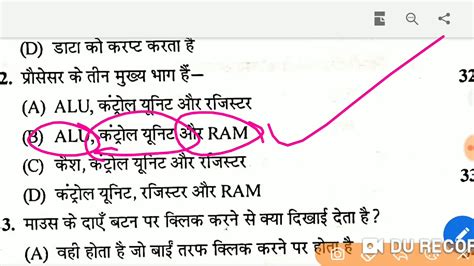 (D) डाटा को करप्ट करता है
2. प्रौसेसर के तीन मुख्य भाग हैं—
32
(A) ALU, कंट्रोल यूनिट और रजिस्टर
(B) ALU, कंट्रोल यूनिट और RAM
(C) कैश, कंट्रोल यूनिट और रजिस्टर
33
(D) कंट्रोल यूनिट, रजिस्टर और RAM
3. माउस के दाएँ बटन पर क्लिक करने से क्या दिखाई देता है?
(A) वही होता है जो बाईं तरफ क्लिक करने पर होता है
DU RECOR